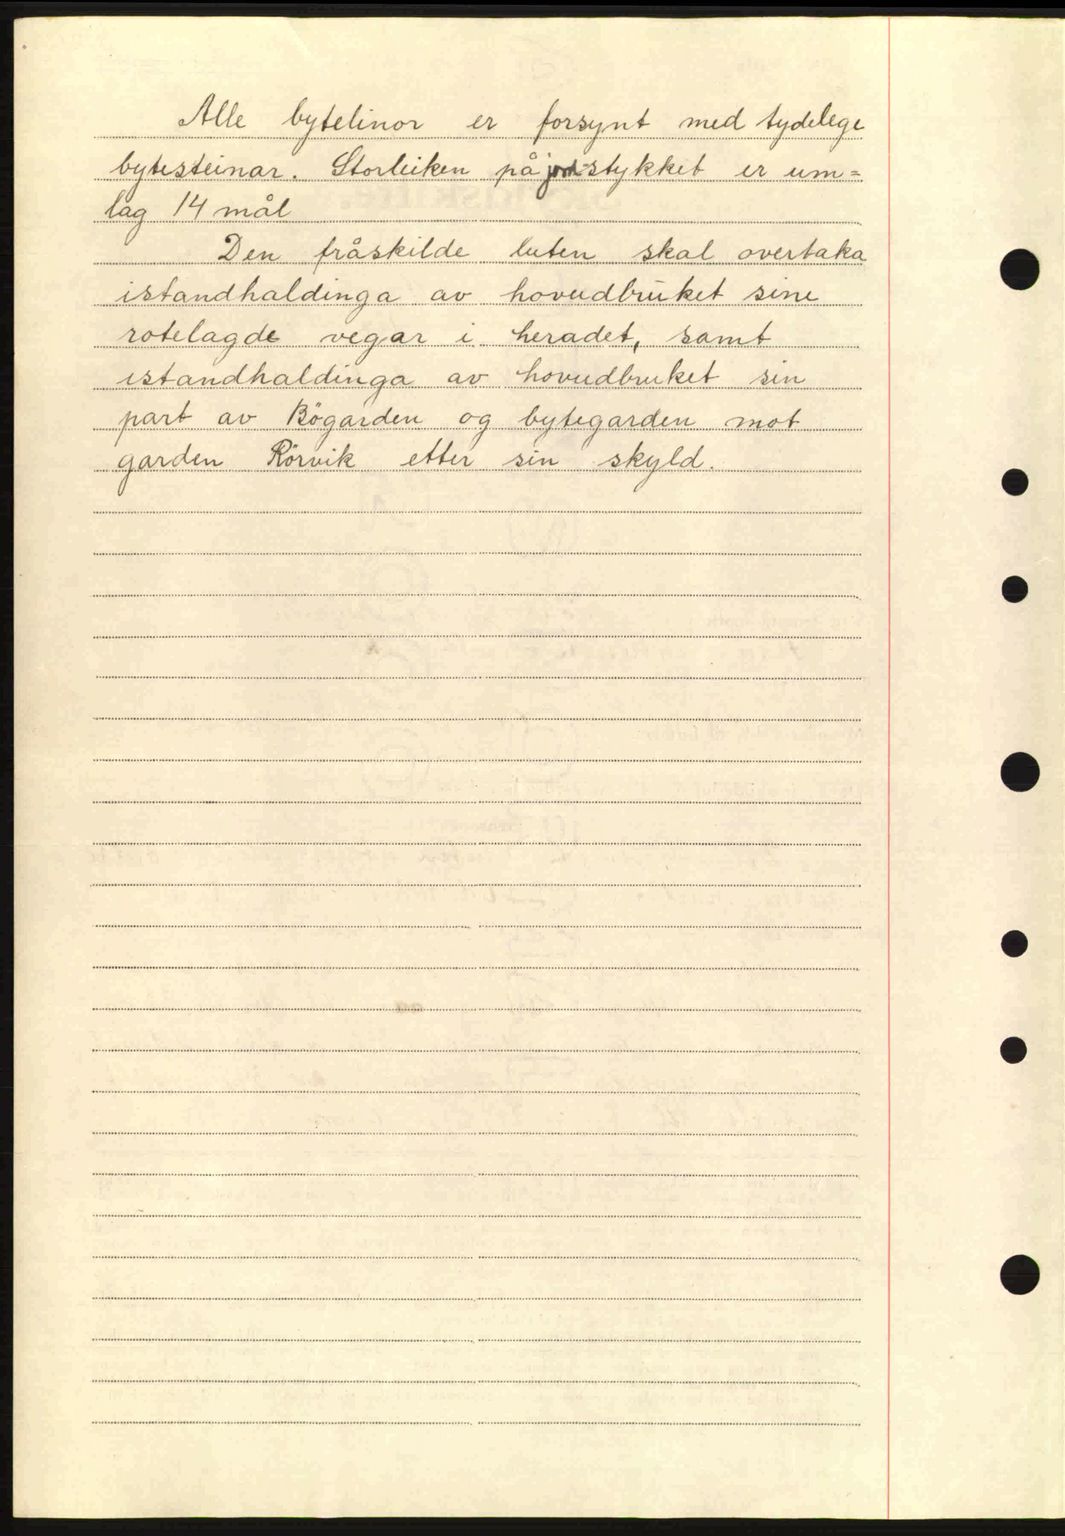 Alle bytelinor er forsynt med tydelege
bytesteinar. Storleiken på jord-stykket er um=
lag 14 mål
Den fråskilde luten skal overtaka
istandhaldinga av hovudbruket sine
rotelagde vegar i heradet, samt
istandhaldinga av hovudbruket sin
part av Bögarden og bytegarden mot
garden Rörvik etter sin skyld.